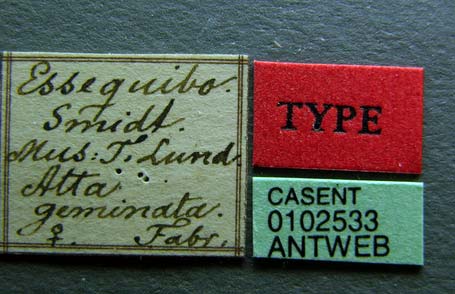 Essequibo.
Smidt.
Mus: T. Lund.
Atta
geminata.
♀. Fabr.
TYPE
CASENT
0102533
ANTWEB